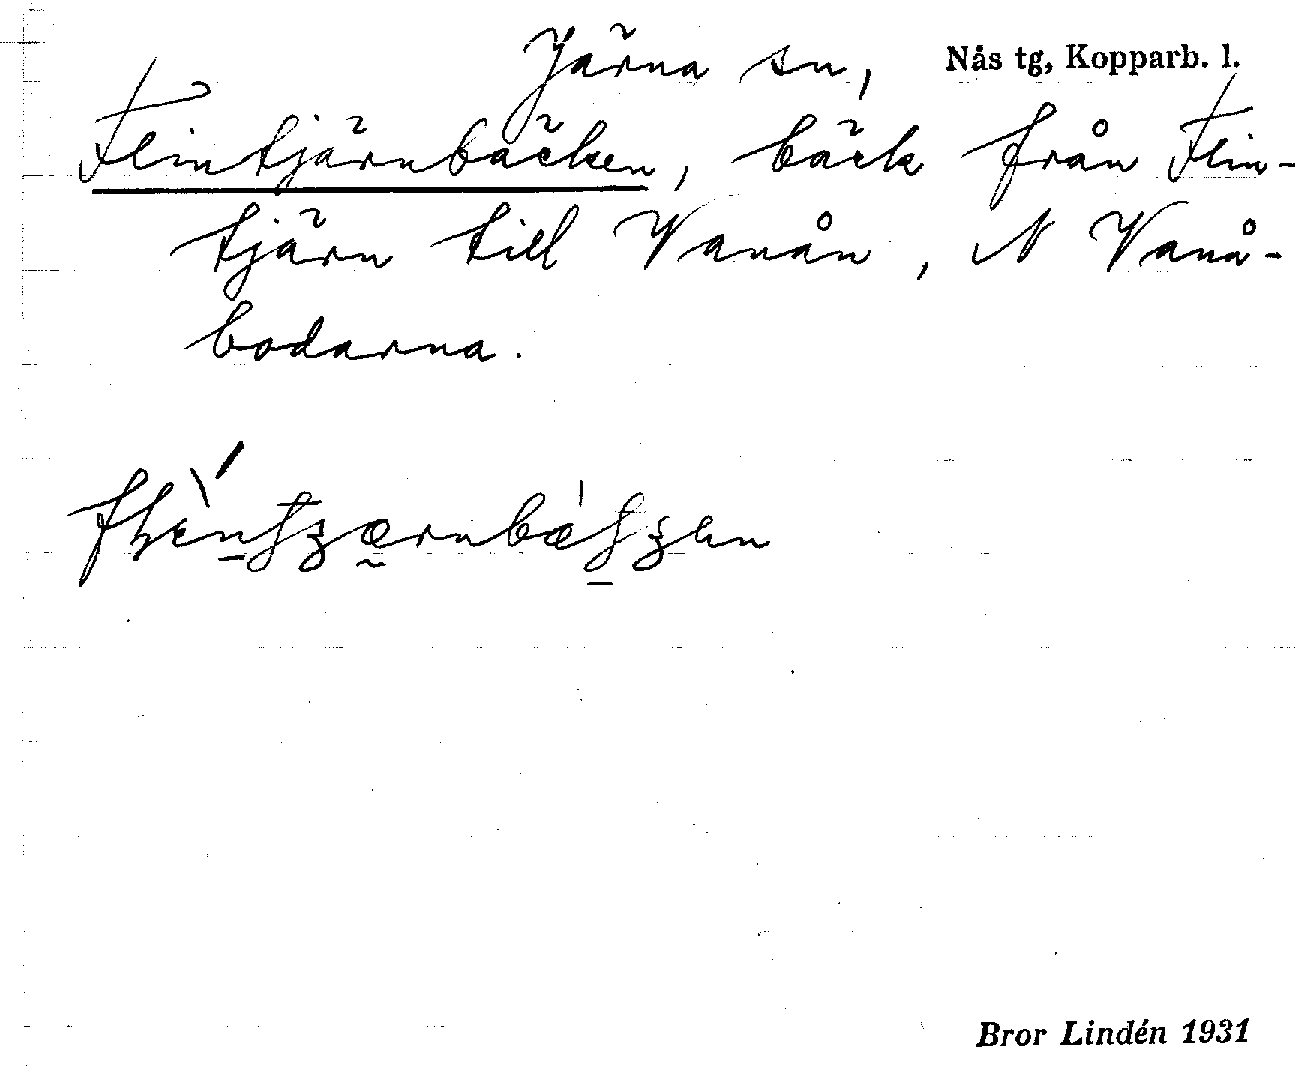 Järna sn, Nås tg, Kopparb. l.
Flintjärnbäcken, bäck från Flin-
tjärn till Vanån, N Vanå-
bodarna.
Bror Lindén 1931